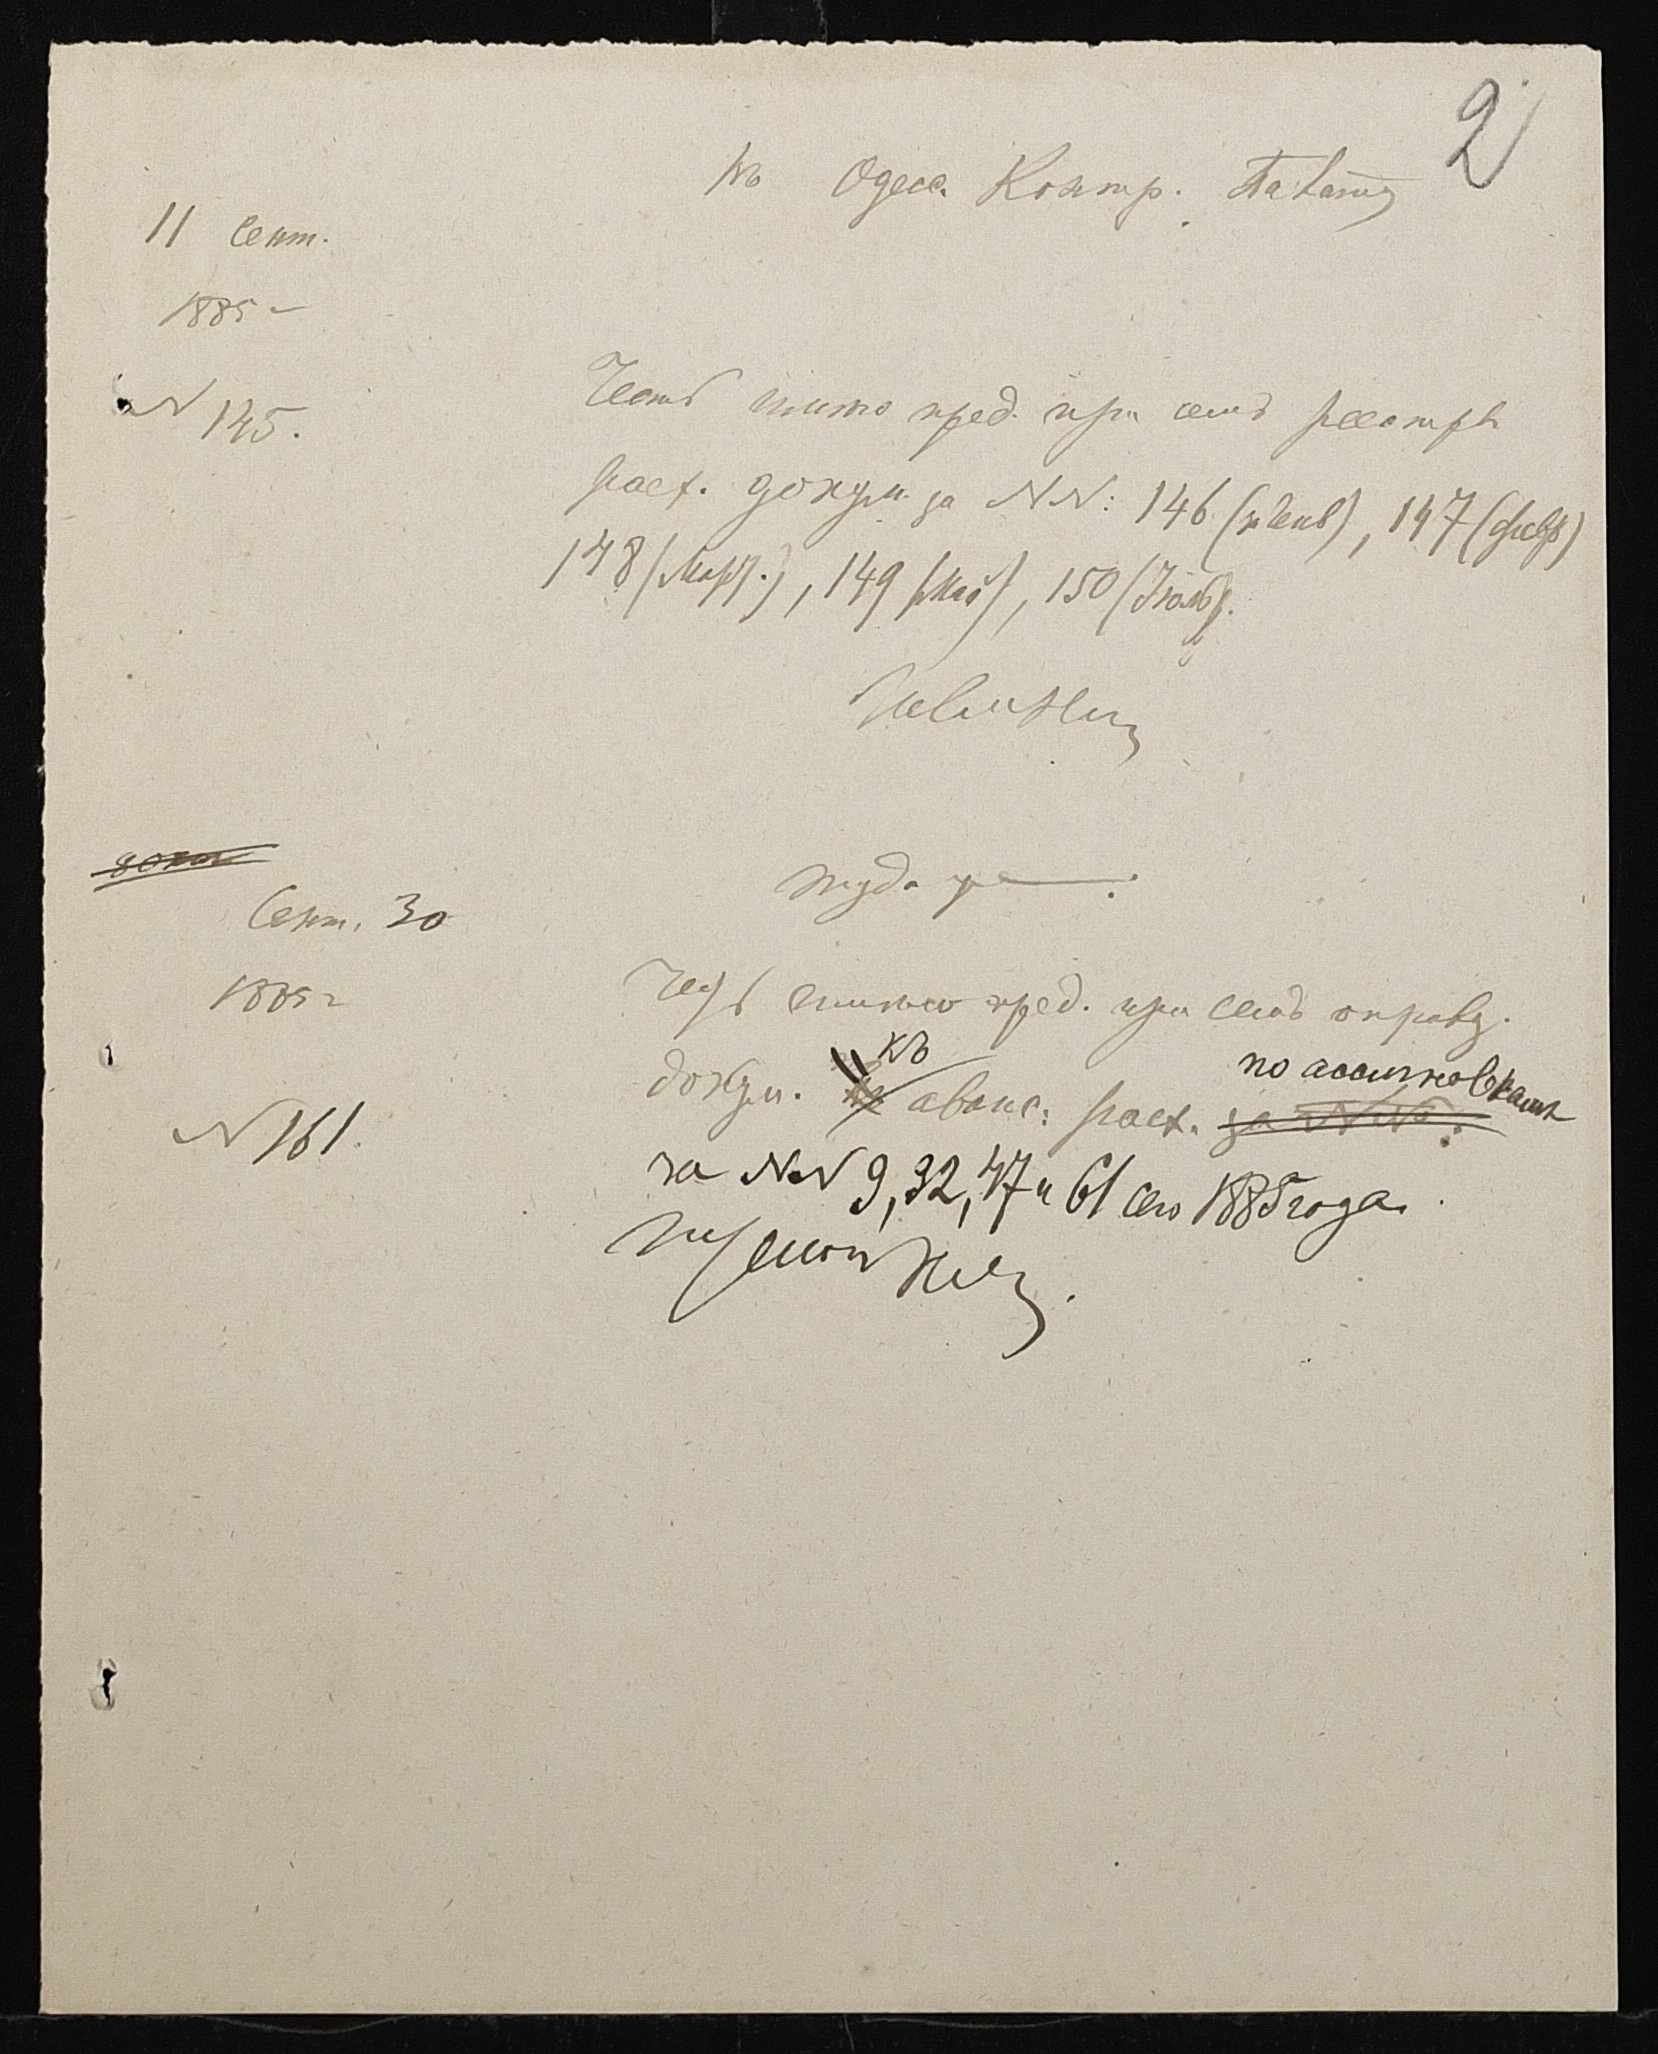 2
Въ Одесс. Контр. Палату
11 Сент.
1885 г
N 145.
Честь имею пред. при семъ реестръ
расх. докум. за NN: 146 (Генв), 147 (февр)
148 (Март.), 149 (Май), 150 (Іюль).
30 сен
Сент. 30
1885 г
N 161.
туда же
Честь имею пред. при семъ оправд.
докум. къ аванс. расх. по ассигновкамъ за NN.
за NN 9, 32, 47 и 61 сего 1885 года.